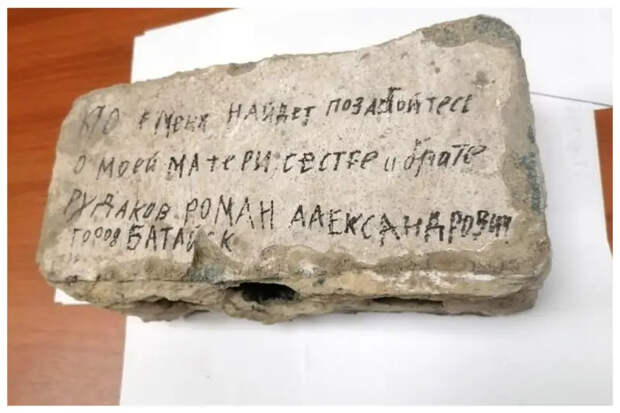 КТО МЕНЯ НАЙДЕТ ПОЗАБОЙТЕСЬ
О МОЕЙ МАТЕРИ, СЕСТРЕ и брате
РУДАКОВ РОМАН АЛЕКСАНДРОВИЧ
город БАТАЙСК